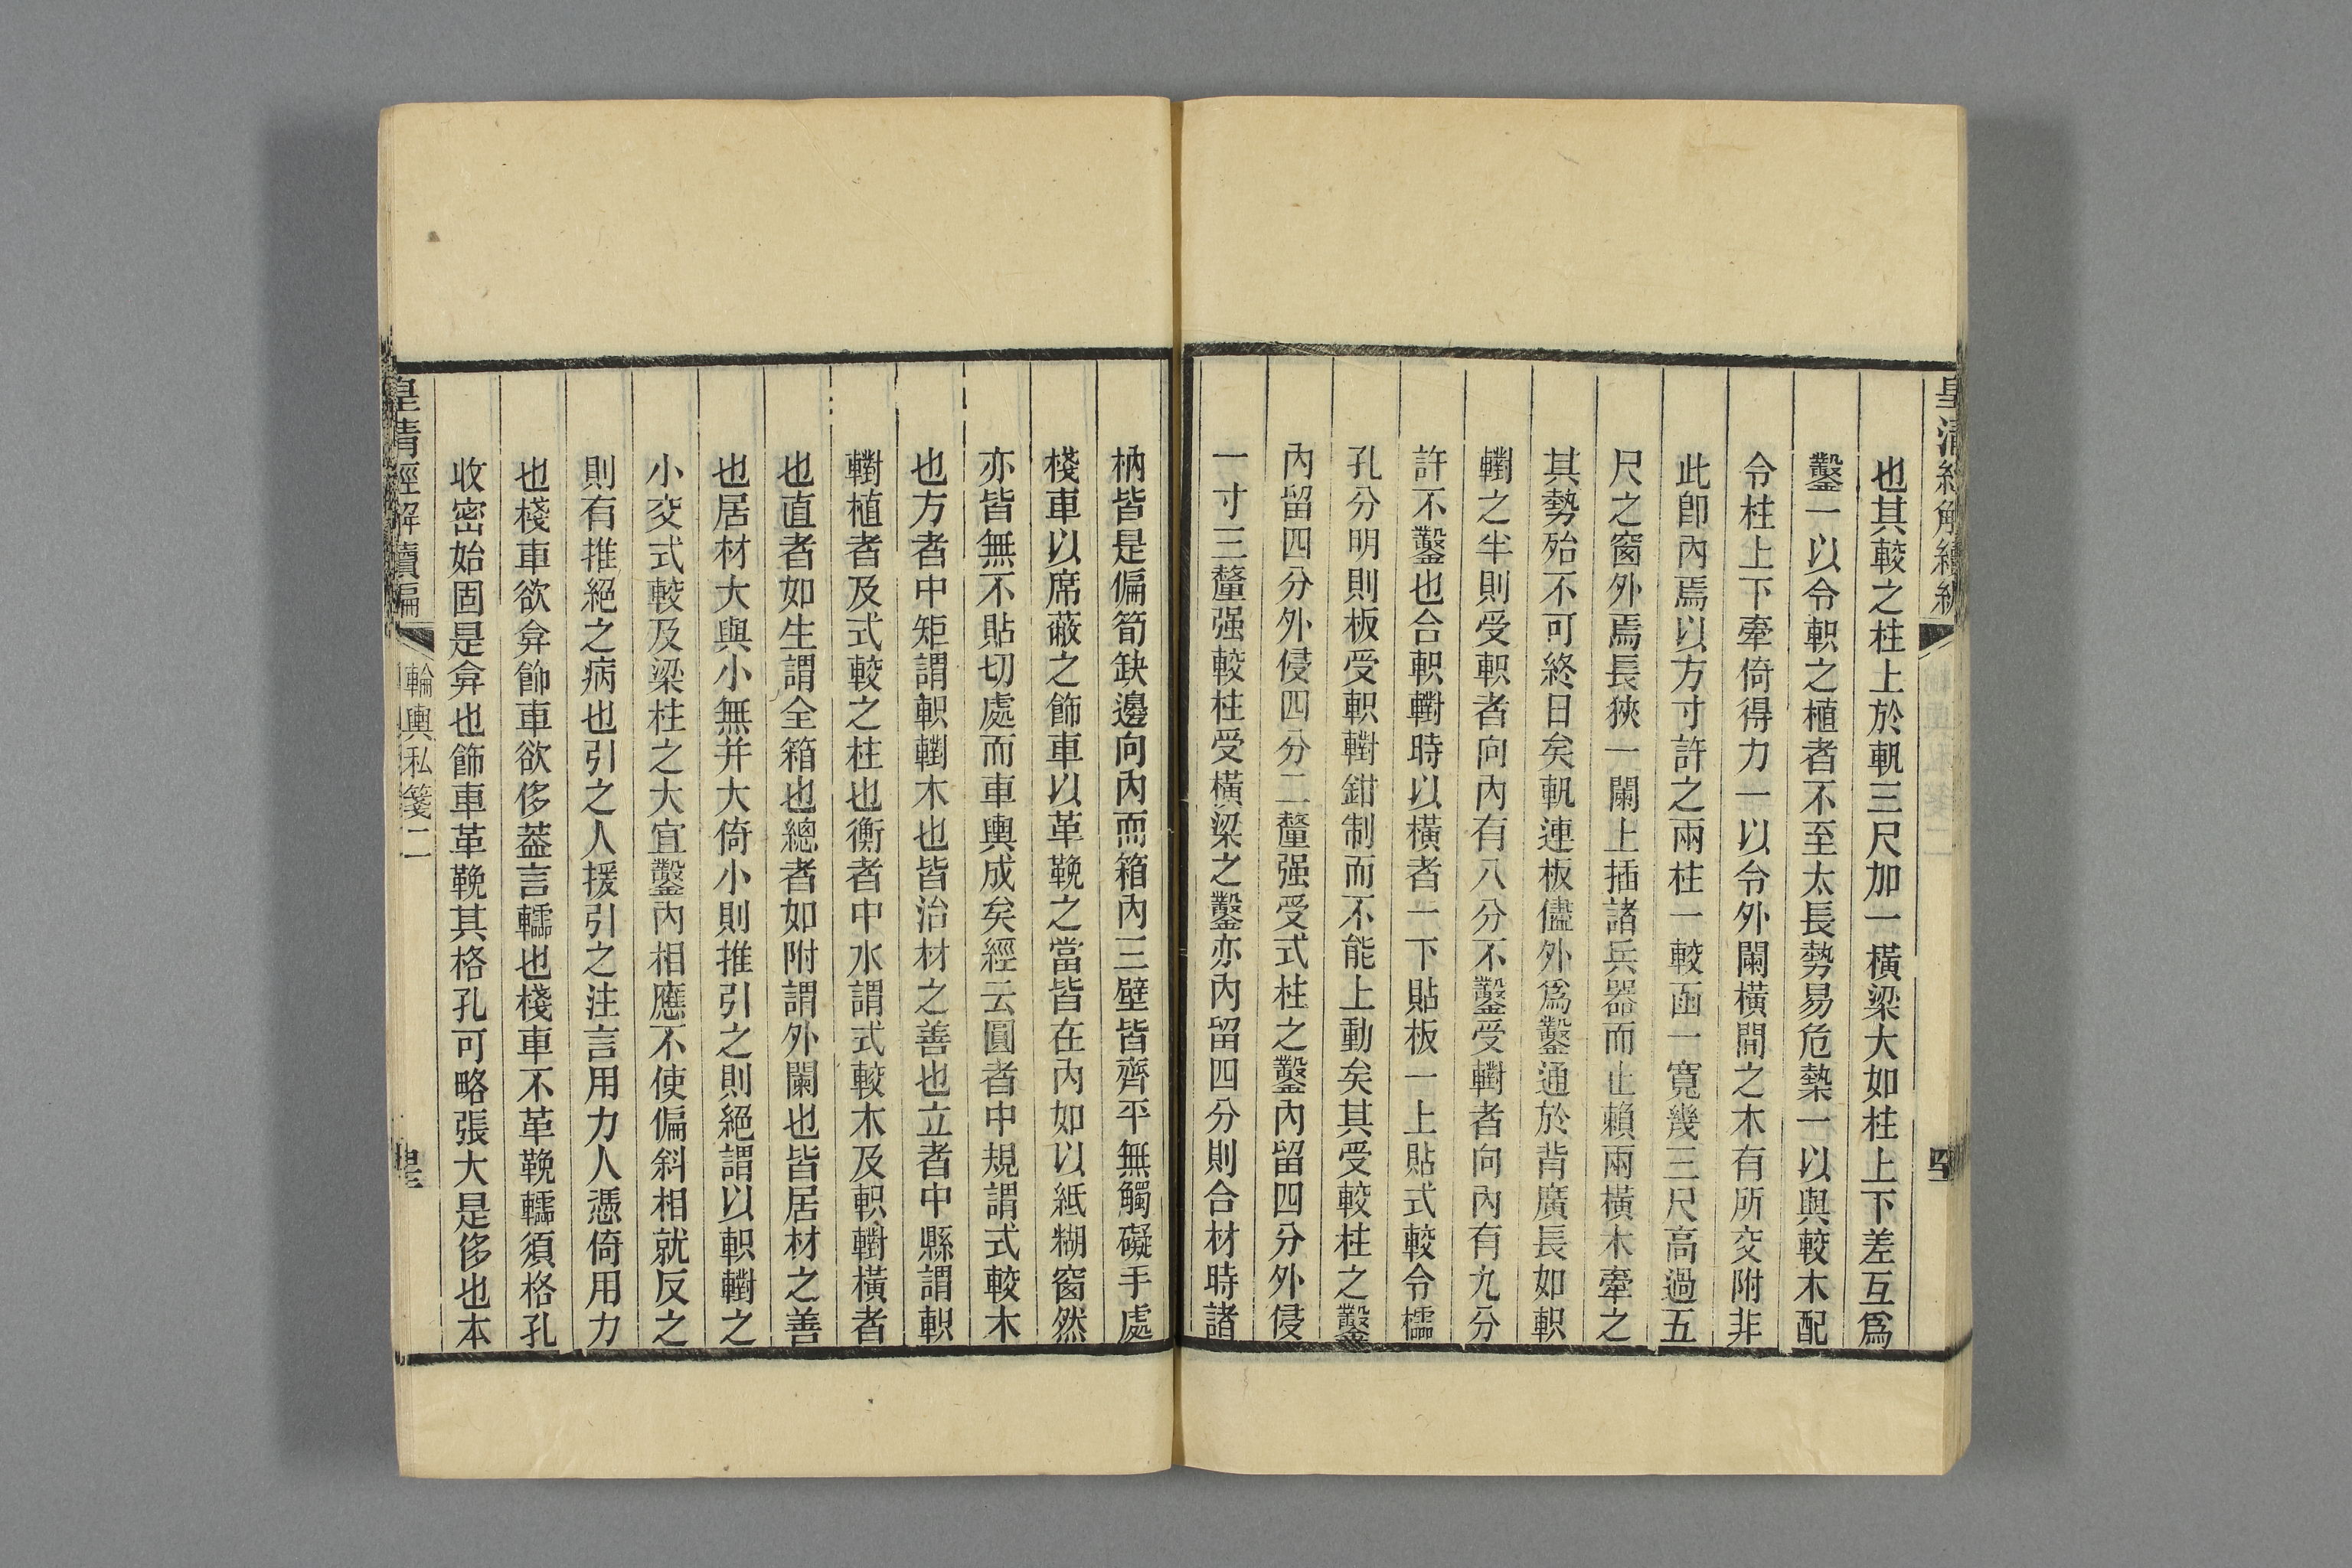 也其較之柱上於軓三尺加一橫梁大如柱上下差互爲
鑿一以令軹之植者不至太長勢易危槷一以與較木配
令柱上下牽倚得力一以令外闌橫閒之木有所交附非
此卽內焉以方寸許之兩柱一較函一寬幾三尺高過五
尺之窗外焉長狹一闌上插諸兵器而止賴兩橫木牽之
其勢殆不可終日矣軓連板儘外爲鑿通於背廣長如軹
轛之半則受軹者向內有八分不鑿受轛者向內有九分
許不鑿也合軹轛時以橫者一下貼板一上貼式較令檽
孔分明則板受軹轛鉗制而不能上動矣其受較柱之鑿
內留四分外侵四分二釐强受式柱之鑿內留四分外侵
一寸三釐强較柱受橫梁之鑿亦內留四分則合材時諸
枘皆是偏筍缺邊向內而箱內三壁皆齊平無觸礙手處
棧車以席蔽之飾車以革鞔之當皆在內如以紙糊窗然
亦皆無不貼切處而車輿成矣經云圓者中規謂式較木
也方者中矩謂軹轛木也皆治材之善也立者中縣謂軹
轛植者及式較之柱也衡者中水謂式較木及軹轛橫者
也直者如生謂全箱也總者如附謂外闌也皆居材之善
也居材大與小無并大倚小則推引之則絕謂以軹轛之
小交式較及梁柱之大宜鑿內相應不使偏斜相就反之
則有推絕之病也引之人援引之注言用力人憑倚用力
也棧車欲弇飾車欲侈葢言轜也棧車不革鞔轜須格孔
收密始固是弇也飾車革鞔其格孔可略張大是侈也本
皇清經解續編
輪輿私箋二